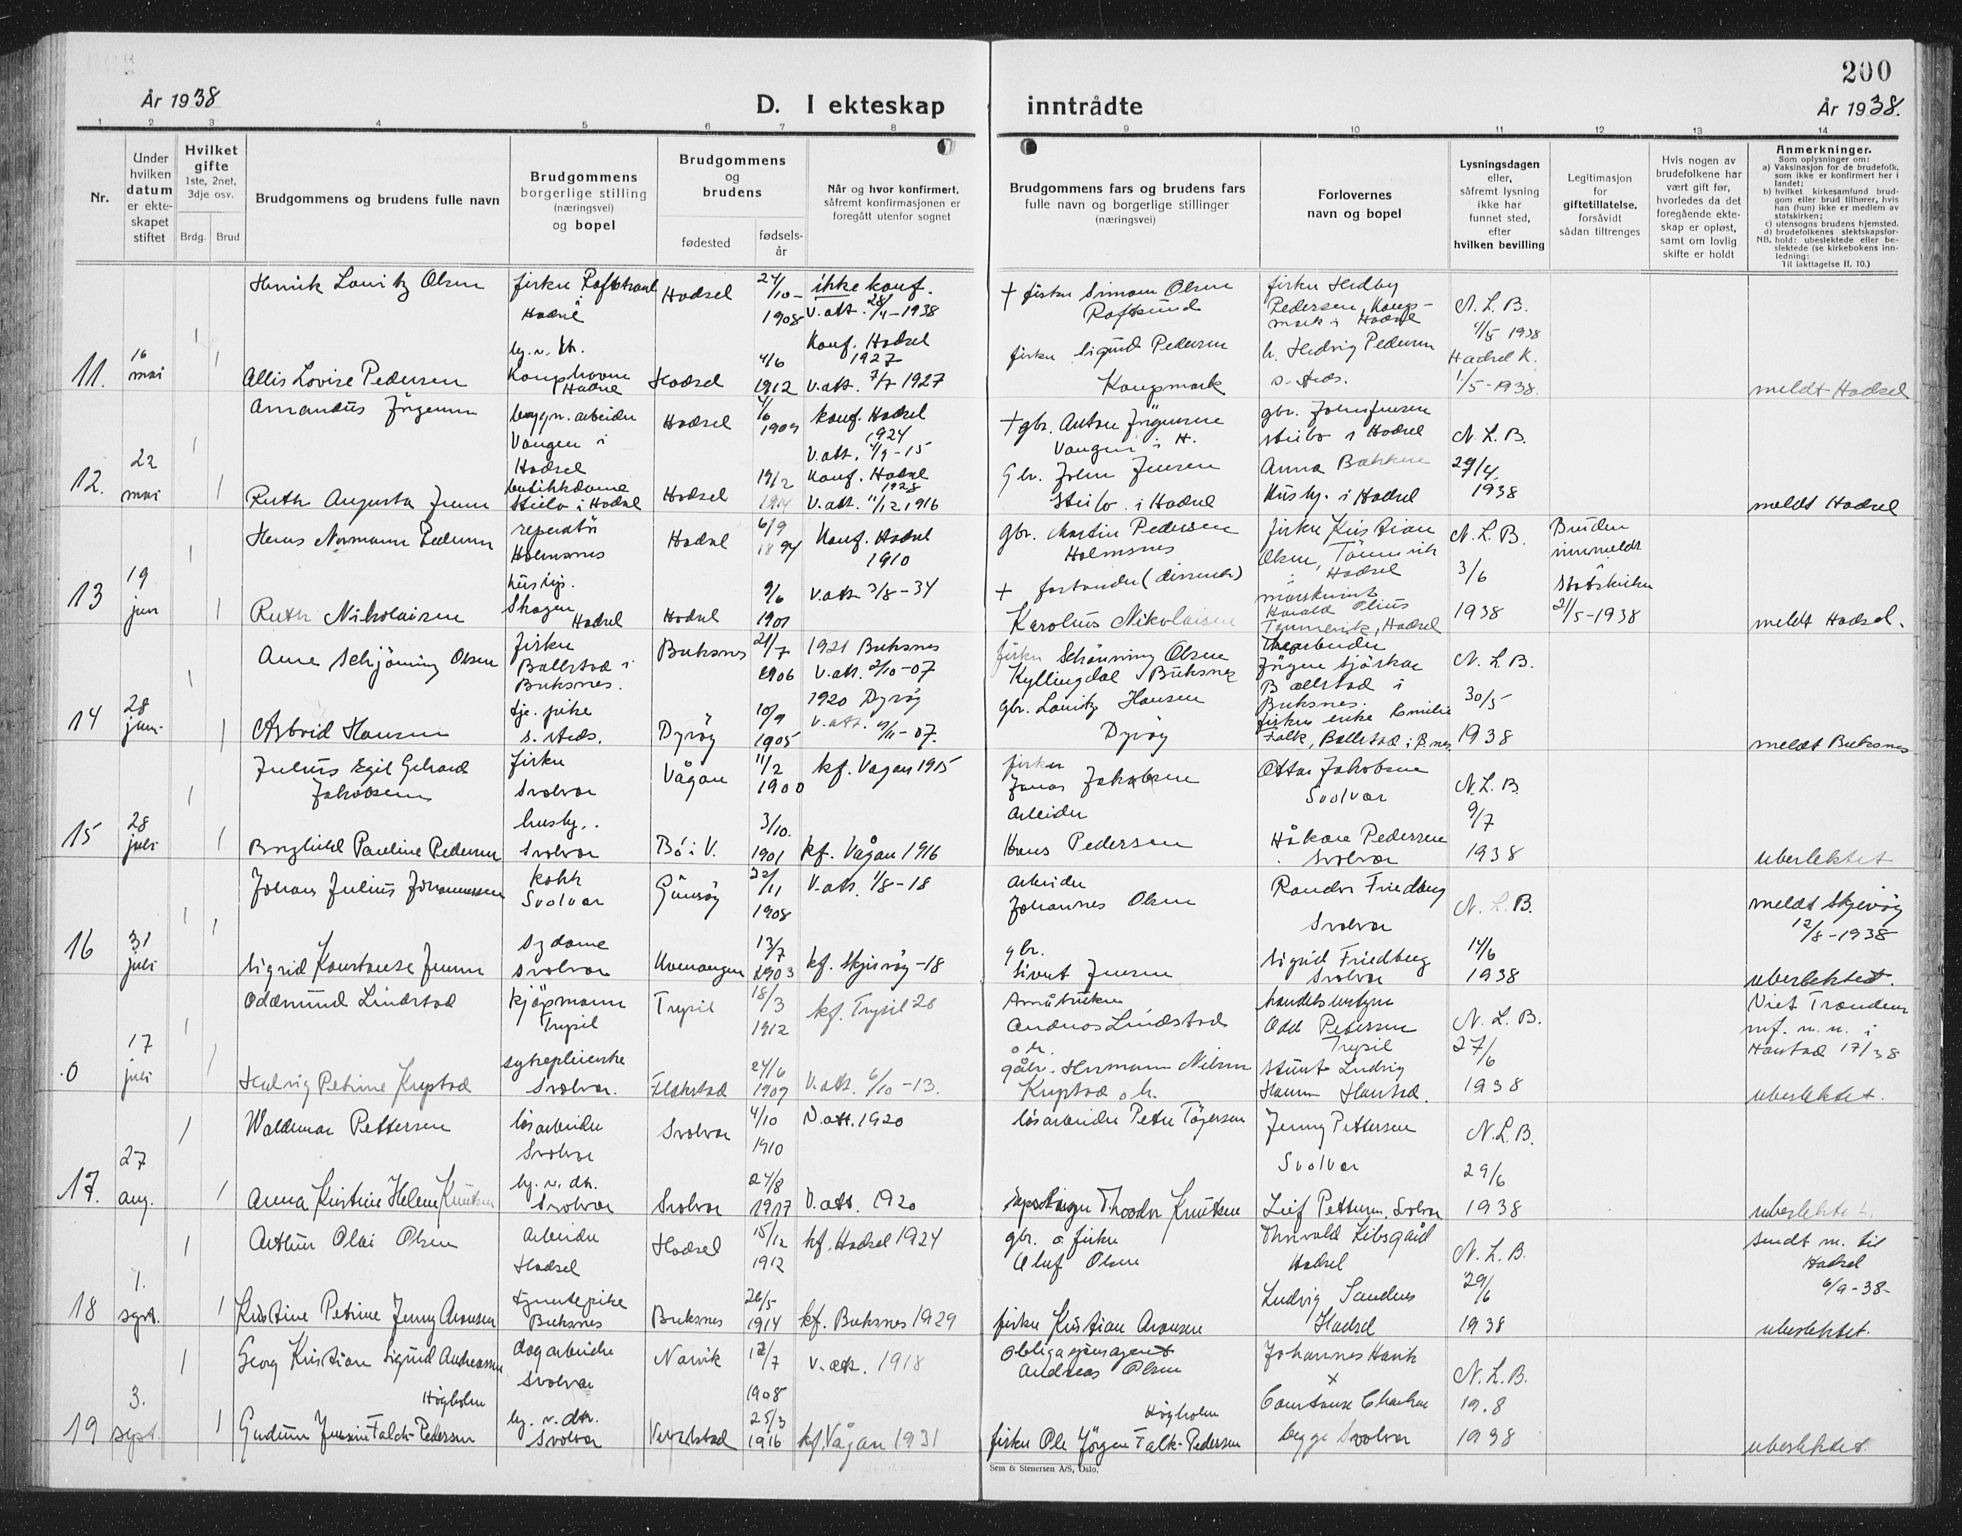 200
År 1938
D. I ekteskap
inntrådte
År 1938.
1 2 3 4 5 6 7 8 9 10 11 12 13 14
Nr.
Under
hvilken
datum
er ekte-
skapet
stiftet
Hvilket
gifte
1ste, 2net,
3dje osv.
Brdg.
Brud
Brudgommens og brudens fulle navn
Brudgommens
borgerlige stilling
(næringsvei)
og bopel
Brudgommens
og
brudens
fødested
fødsels-
år
Når og hvor konfirmert,
såfremt konfirmasjonen er
foregått utenfor sognet
Brudgommens fars og brudens fars
fulle navn og borgerlige stillinger
(næringsvei)
Forlovernes
navn og bopel
Lysningsdagen
eller,
såfremt lysning
ikke har
funnet sted,
efter
hvilken bevilling
Legitimasjon
for
giftetillatelse,
forsåvidt
sådan tiltrenges
Hvis nogen av
brudefolkene har
vært gift før,
hvorledes da det
foregående ekte-
skap er opløst,
samt om lovlig
skifte er holdt
Anmerkninger.
Som oplysninger om:
a) Vaksinasjon for de brudefolk,
som ikke er konfirmert her i
landet;
b) hvilket kirkesamfund brud-
gom eller brud tilhører, hvis
han (hun) ikke er medlem av
statskirken;
c) utensogns brudens hjemsted.
d) brudefolkenes slektskapsfor-
NB. hold: ubeslektede eller be-
slektede (se kirkebokens inn-
ledning:
Til iakttagelse II. 10.)
11.
16
mai
1
1
Henrik Lauritz Olsen
fisker
i
Hadsel
Hadsel
24/10-
1908
ikke konf.
v. att. 28/4-1938
+ fisker Simon Olsen
Raftsund
fisker Hedley
Pedersen, Kaups-
mark i Hadsel
N. L. B.
4/5 1938
Allis Lovise Pedersen
Hadsel
Hadsel
4/6
1912
Konf. Hadsel
1927
v. att. 7/7 1927
fisker Sigurd Pedersen
Kaupmark
h. Hedvig Pedersen
s. steds.
Hadsel K.
1/5-1938.
meldt Hadsel
12.
22
mai
1
1
Amandus Jörgensen
bygn. arbeider
Vangen i
Hadsel
Hadsel
1909
konf. Hadsel
1924
v. att. 4/9-15
+ gbr. Anton Jörgensen
Vangen i H.
gbr. John Jensen
Steilo i Hadsel
N. L. B.
29/4
1938
Ruth Augusta Jensen
butikkdame
Steilo i Hadsel
Hadsel
19/2
Konf. Hadsel
1928
v. att. 11/12 1916
Gbr. John Jensen
Steilo i Hadsel
Anna Bakken
Husby. i Hadsel
meldt Hadsel
13
19
jun
1
1
Hans Normann Pedersen
reperatör
Holmsnes
Hadsel
6/9
1894
Konf. Hadsel
1910
gbr. Martin Pedersen
Holmsnes
fisker Kristian
Olsen, Tönnervik
i Hadsel
N. L. B.
3/6
1938
Bruden
innmeldt
Statskirken
21/5-1938
Ruth Nikolaisen
husbst.
Skagen
Hadsel
Hadsel
9/6
1901
v. att 3/8-34
+ forstander (dissenter)
Karolius Nikolaisen
maskinist
Harald Olius
Tönnervik, Hadsel
meldt Hadsel.
14
28
jun.
1
1
Arne Schjönning Olsen
fisker
Ballstad i
Buksnes.
Buksnes
21/7
1906
1921 Buksnes
v. att. 2/10-07
fisker Schönning Olsen
Kyllingdal, Buksnes
Jörgen Sjöskar
Ballstad i
Buksnes.
N. L. B.
30/5
1938
Astrid Hansen
tje. pike
s. steds.
Dyröy
10/9
1905
1920 Dyröy
v. att. 9/11-07.
gbr. Lauritz Hansen
Dyröy
fisker enke Emilie
Falk, Ballstad i B.nes
meldt Buksnes
15
28
juli
1
1
Julius Egil Gerhard
Jakobsen
fisker
Svolvær
Vågan
11/2
1900
kf. Vågan 1915
fisker
Jonas Jakobsen
Ottar Jakobsen
Svolvær
N. L. B.
9/7
1938
Borghild Pauline Pedersen
husby..
Svolvær
Bö i V.
3/10.
1901
kf. Vågan 1916
Arbeider
Hans Pedersen
Håkon Pedersen
Svolvær
ubeslektet
16
31
juli
1
1
Johan Julius Johannessen
kokk
Svolvær
Gimsöy
22/11
1908
v. att. 1/8-18
Arbeider
Johannes Olsen
Randor Friedberg
Svolvær
N. L. B.
14/6
1938
meldt Skjervöy
12/8-1938
Sigrid Konstanse Jensen
sydame
Svolvær
Kvenangen
13/7
1903
kf. Skjervöy-18
gbr.
Sivert Jensen
Sigrid Friedberg
Svolvær
ubeslektet.
0
17
juli
1
1
Oddmund Lindstad
kjöpmann
Trysil
Trysil
18/3
1912
kf. Trysil 26
Småbruker
Andreas Lindstad
handelsbestyrer
Odd Pettersen
Trysil
N. L. B.
27/6
1938
Viet Trondenes
mf. m. m. i
Harstad 17/7 38
Hedvig Petrine Krystad
sykepleierske
Svolvær.
Flakstad
24/6
1909
v. att. 6/10-13.
gårbr. Hermann Nilsen
Krystad
Ludvig
Harstad.
ubeslektet.
17.
27
aug.
1
1
Waldemar Pettersen
lösarbeider
Svolvær
Svolvær
4/10
1910
v. att. 1920
lösarbeider Peter Tögersen
Jenny Pettersen
Svolvær
N. L. B.
29/6
1938
Anna Kristine Helene Knutsen
Svolvær
Svolvær
24/8
1917
V. att. 1920
Theodor Knutsen
Leif Pettersen, Svolvær
ubeslektet.
18
1.
sept.
1
1
Arthur Olai Olsen
Arbeider
Hadsel
Hadsel
15/12
1912
kf. Hadsel 1924
gbr. o fisker
Oluf Olsen
Thorvald Libsgård
Hadsel
N. L. B.
29/6
1938
Sendt m. til
Hadsel
6/9-38-
Kristine Petrine Jenny Aronsen
tjenestepike
Buksnes
Buksnes
26/5
1914
kf. Buksnes 1929
fisker Kristian Aronsen
Ludvig Sandnes
Hadsel
ubeslektet.
19
3.
sept.
1
1
Georg Kristian Sigurd Andreassen
dagarbeider
Svolvær
Narvik
12/7
1908
v. att. 1918
Obligasjonsagent
Andreas Olsen
Johannes Hanik
x
N. L. B.
19.8
1938
Högholm
Gudrun Jensine Falch-Pedersen
Svolvær
25/3
1916
kf. Vågan 1931
Högholm
fisker Ole Jörgen Falk-Pedersen
Constanse Charles
begge Svolvær
ubeslektet.
Sem & Stenersen A/S, Oslo.